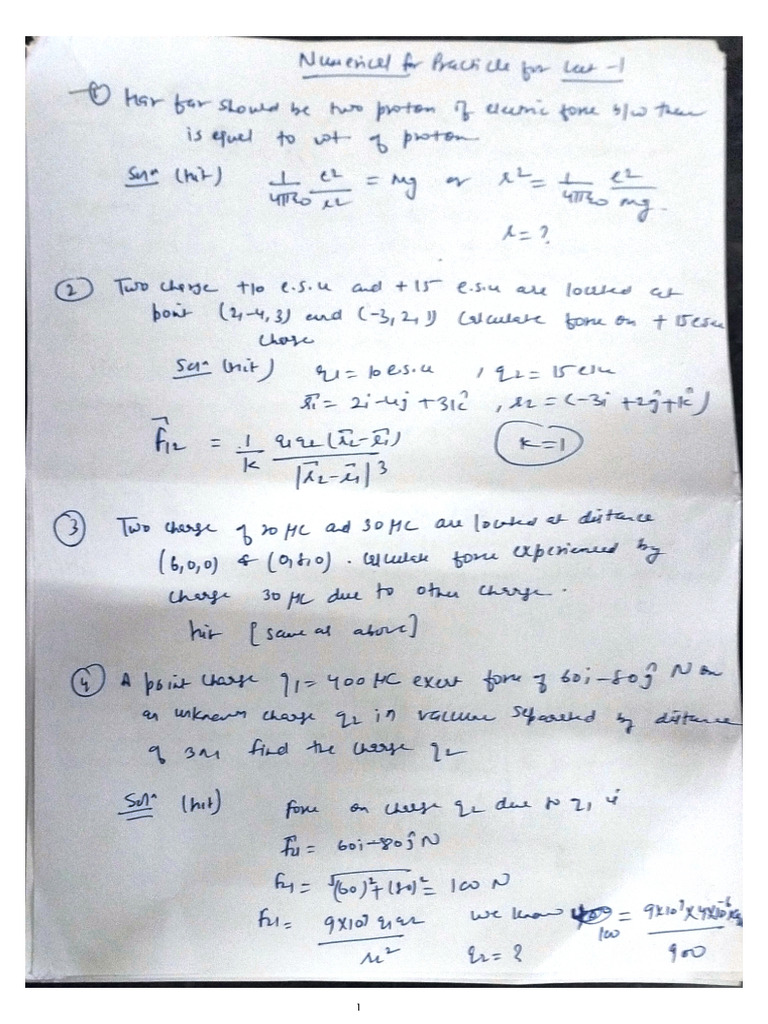 Numerical for Practice for Lect -1
① How far should be two proton if electric force b/w them
is equal to wt of proton
Solⁿ (hit) 1/4π∑0 e²/r² = mg or r² = 1/4π∑0 e²/mg.
r = ?
② Two charge +10 e.s.u and +15 e.s.u are located at
point (2,-4,3) and (-3,2,1) calculate force on +15 esu
charge
Solⁿ (hit) q1 = 10 e.s.u , q2 = 15 esu
r1 = 2i-4j+3k̂ , r2 = (-3i+2ĵ+k̂)
F12 = 1/k q1q2 (r2-r1)/|r2-r1|³ K=1
③ Two charge of 20 μC and 30 μC are located at distance
(6,0,0) & (0,8,0). calculate force experienced by
charge 30 μC due to other charge.
hit [same as above]
④ A point charge q1 = 400 μC exert force of 60i-80ĵ N on
an unknown charge q2 in vacuum separated by distance
of 3m find the charge q2
Solⁿ (hit) force on charge q2 due to q1 is
F21 = 60i-80ĵ N
F21 = √(60)²+(80)² = 100 N
F21 = 9×10⁹ q1q2/r² we know 100 = 9×10⁹×4×10⁻⁶×q2/900
q2 = ?
1